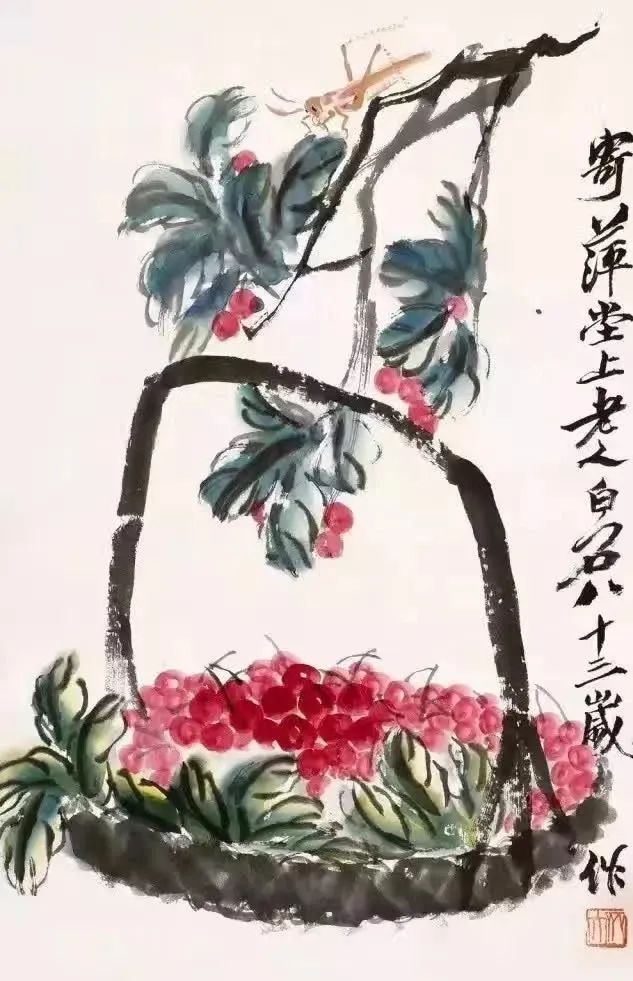 寄萍堂上老人白石八十三岁作